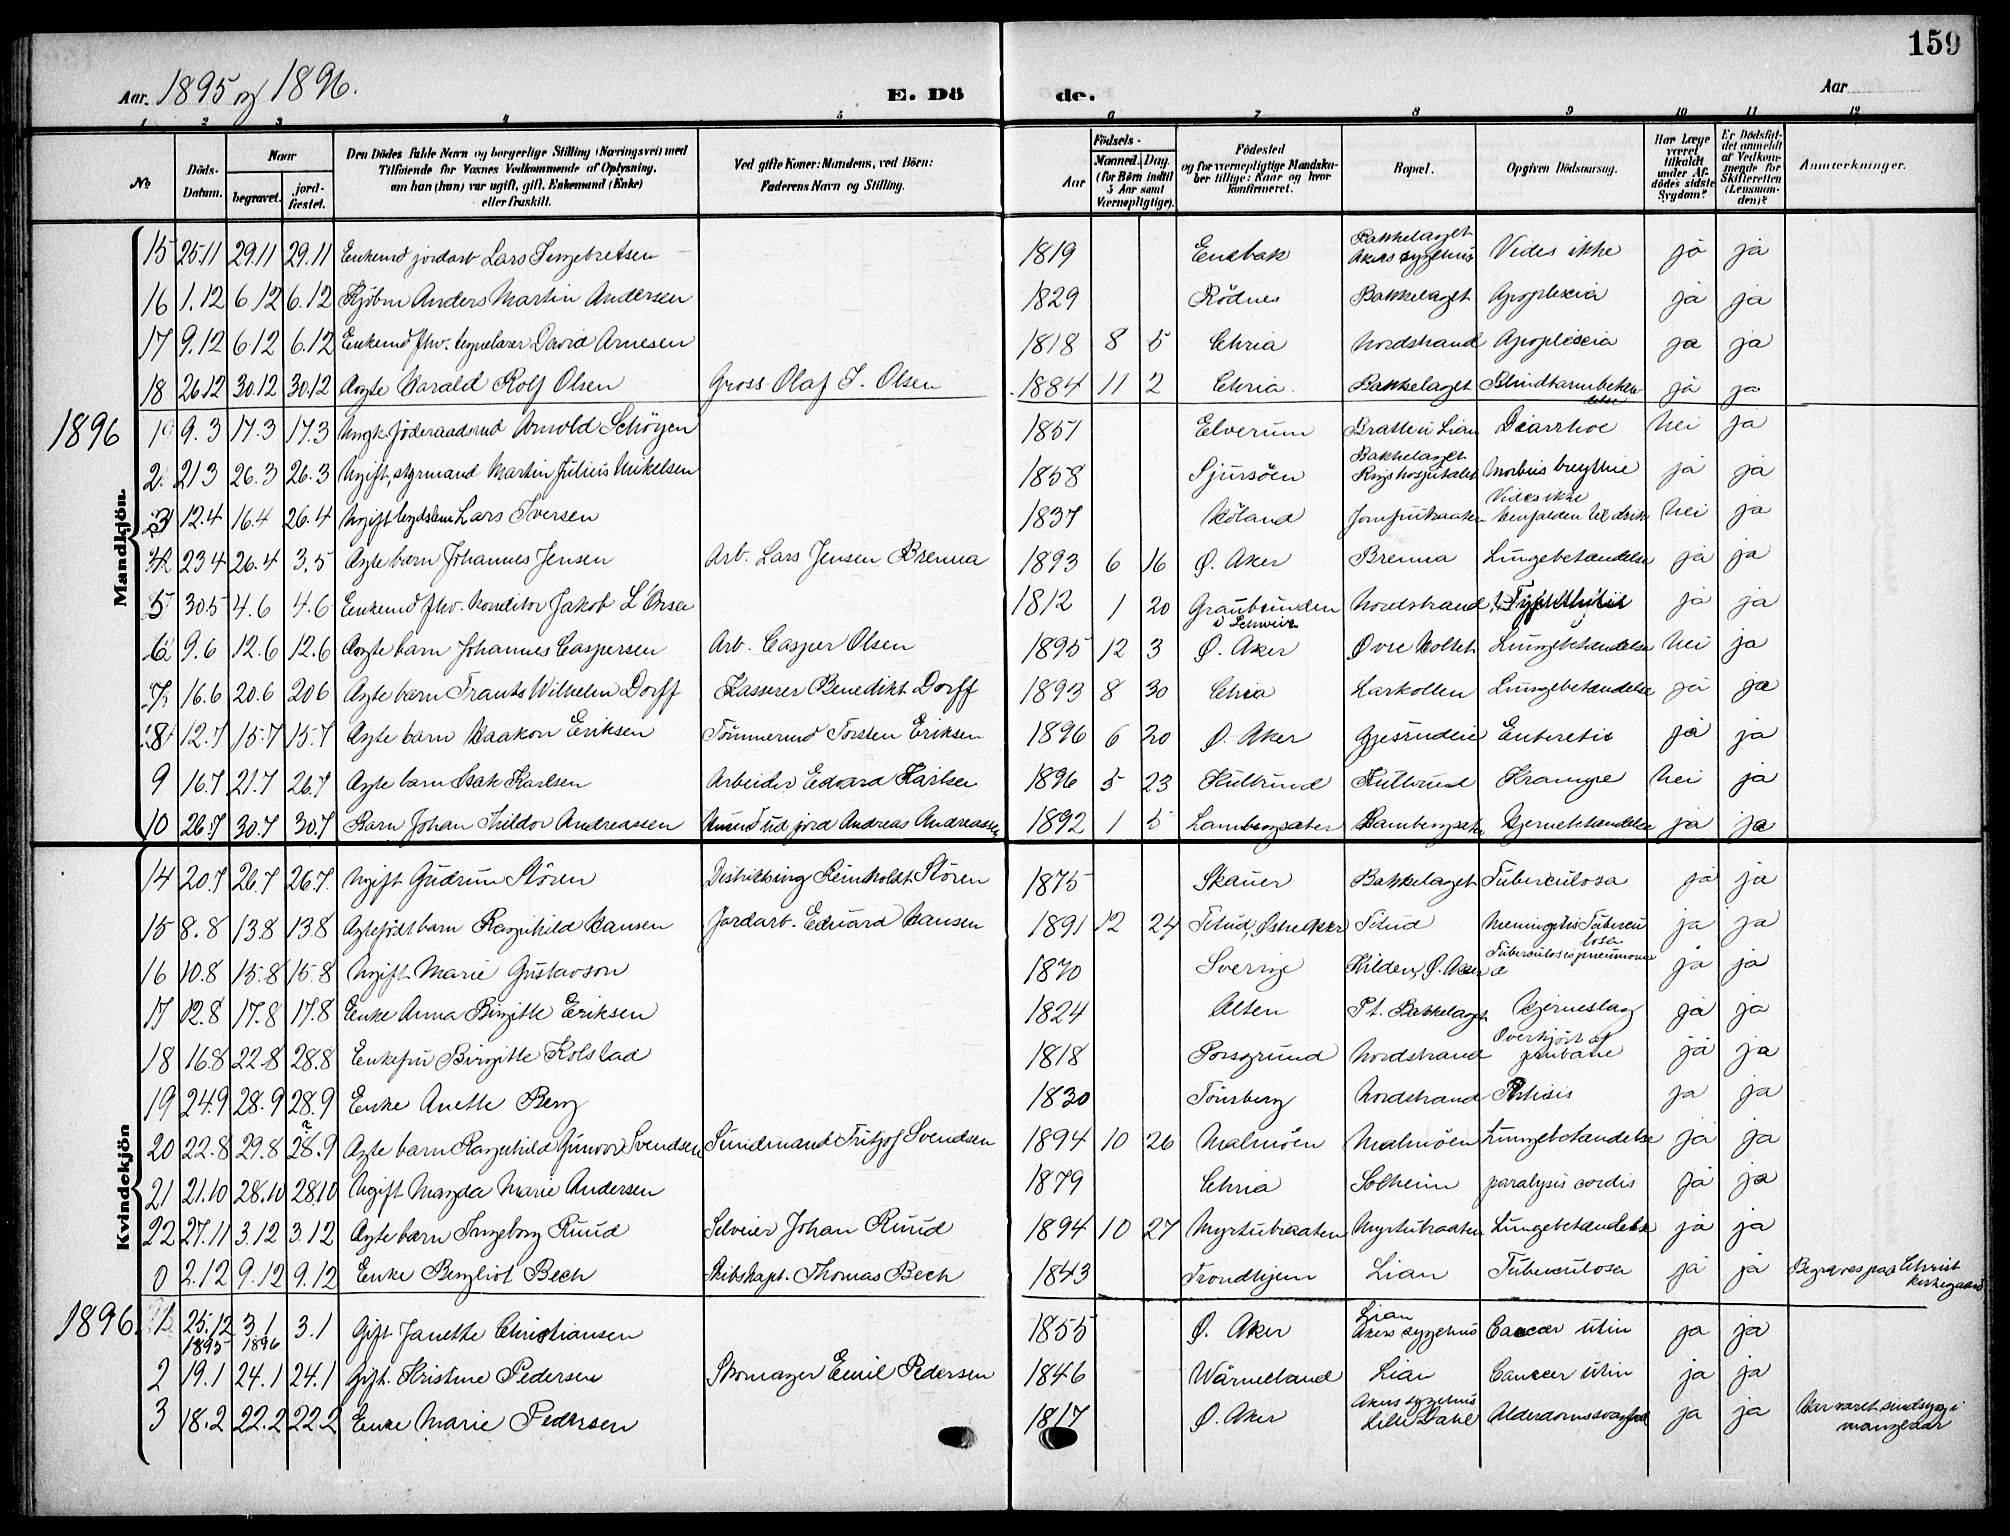 159
Aar. 1895 og 1896.
E. Dö de.
Aar
1 2 3 4 5 6 7 8 9 10 11 12
No
Döds-Datum.
Naar
begravet.
jord-fæstet.
Den Dödes fulde Navn og borgerlige Stilling (Næringsvei) med
Tilföiende for Voxnes Vedkommende af Oplysning,
om han (hun) var ugift, gift, Enkemand (Enke)
eller fraskilt.
Ved gifte Koner: Mandens, ved Börn:
Faderens Navn og Stilling.
Födsels-
Aar
Maaned. Dag
(for Börn indtil
5 Aar samt
Værnepligtige).
Födested
og for værnepligtige Mandska-
ber tillige: Naar og hvor
konfirmeret.
Bopæl.
Opgiven Dödsaarsag.
Har Læge
været
tilkaldt
under Af-
dödes sidste
Sygdom?
Er Dödsfal-
det anmeldt
af Vedkom-
mende for
Skifteretten
(Lensman-
den)?
Anmerkninger.
Mandkjön.
15 25.11 29.11 29.11 Enkemd jordarb Lars Ingebretsen 1819 Enebak Bækkelaget Akers sygehus Vides ikke ja ja
16 1.12 6 12 6.12 Kjøbm Anders Martin Andersen 1829 Rödnes Bækkelaget Apoplexia ja ja
17 9.12 6 12 6.12 Enkemd fhv. David Arnesen 1818 8 5 Chria Nordstrand Apoplexia ja ja
18 26.12 30.12 30.12 Ægte Harald Rolf Olsen Gross Olaf J. Olsen 1884 11 2 Chria. Bækkelaget ja ja
1896
1 9.3 17.3 17.3 Arnold Schöyen 1851 Elverum Bratten Lian Diarrhoe Nei ja
2 21 3 26.3 26.3 Ugift, styrmand Martin Julius Mikelsen 1858 Sjursöen Bækkelaget Morbus ja ja
3 12.4 16.4 26.4 Ugift Lars Iversen 1837 Vides ikke Nei ja
4 23 4 26.4 3.5 Ægte barn Johannes Jensen Arb. Lars Jensen Brenna 1893 6 16 Ø. Aker Brenna Lungebetændelse ja ja
5 30 5 4.6 4.6 Enkemd fhv. Konditor Jakob L'Orsa 1812 1 20 Graubünden i Schweiz Nordstrand ja ja
6 9.6 12.6 12.6 Ægte barn Johannes Caspersen Arb. Casper Olsen 1895 12 3 Ø. Aker Øvre Holtet Lungebetændelse Nei ja
7 16.6 20.6 20 6 Ægte barn Frants Wilhelm Dorff Kasserer Benedikt Dorff 1893 8 30 Chria Larkollen Lungebetændelse ja ja
8 12.7 15.7 15.7 Ægte barn Haakon Eriksen Tömmermd Torsten Eriksen 1896 6 20 Ø. Aker Enteretis ja ja
9 16.7 21.7 26.7 Ægte barn Isak Karlsen Arbeider Edvard Karlsen 1896 5 23 Kultrud Kultrud Krampe Nei ja
10 26.7 30.7 30.7 Barn Johan Hildor Andreassen Husmd ud jord Andreas Andreassen 1892 1 5 Lambergsæter Lambergsæter Hjernebetændelse ja ja
Kvindekjön
14 20.7 26.7 26.7. Ugift Gudrun Stören Distriktsing Reinholdt Stören 1875 Skauer Bækkelaget Tuberculosa ja ja
15 8.8 13.8 13.8 Ægtefødt barn Ragnhild Hansen Jordarb. Edvard Hansen 1891 12 24 Titud, Østre Aker Titud Meningitis Tubercu losa ja ja
16 10.8 15.8 15.8 Ugift Marie Gustavson 1870 Sverige Kilden, Ø. Aker Tuberculosis pneumonia ja ja
17 12.8 17.8 17.8 Enke Anna Birgitte Eriksen 1824 Alten Pt. Bækkelaget Hjerneslag ja ja
18 16.8 22.8 28.8 Enkefru Birgitte Kolstad 1818 Porsgrund Nordstrand Overkjört af jernbane ja ja
19 24.9 28.9 28.9 Enke Anette Berg 1830 Tönsberg Nordstrand Phtisis ja ja
20 22.8 29.8 28.9 ? Ægte barn Ragnhild Gunvor Svendsen Fritjof Svendsen 1894 10 26 Malmöen Malmöen Lungebetændelse ja ja
21 21.10 28.10 28.10 Ugift Magda Marie Andersen 1879 Chria Solheim paralysis cordis ja ja
22 27.11 3.12 3.12 Ægte barn Ingeborg Ruud Selveier Johan Ruud 1894 10 27 Myrtubraaten Myrtubraaten Lungebetændelse ja ja
0 2.12 9.12 9.12 Enke Bergliot Bech Skibskapt. Thomas Bech 1843 Trondhjem Lian Tuberculosa ja ja Begraves paa Christ kirkegaard
1896.
1 25.12 1895 3.1 1896 3.1 Gift Janette Christiansen 1855 Ø. Aker Lian Akers sygehus Cancer utin ja ja
2 19.1 24.1 24.1 Gift. Kristine Pedersen Skomager Emil Pedersen 1846 Wärmeland Lian Cancer utin ja ja
3 18.2 22.2 22.2 Enke Marie Pedersen 1817 Ø. Aker Akers sygehus Lille Dahl Alderdomssvaghed ja ja Har været sindssyg i mange aar